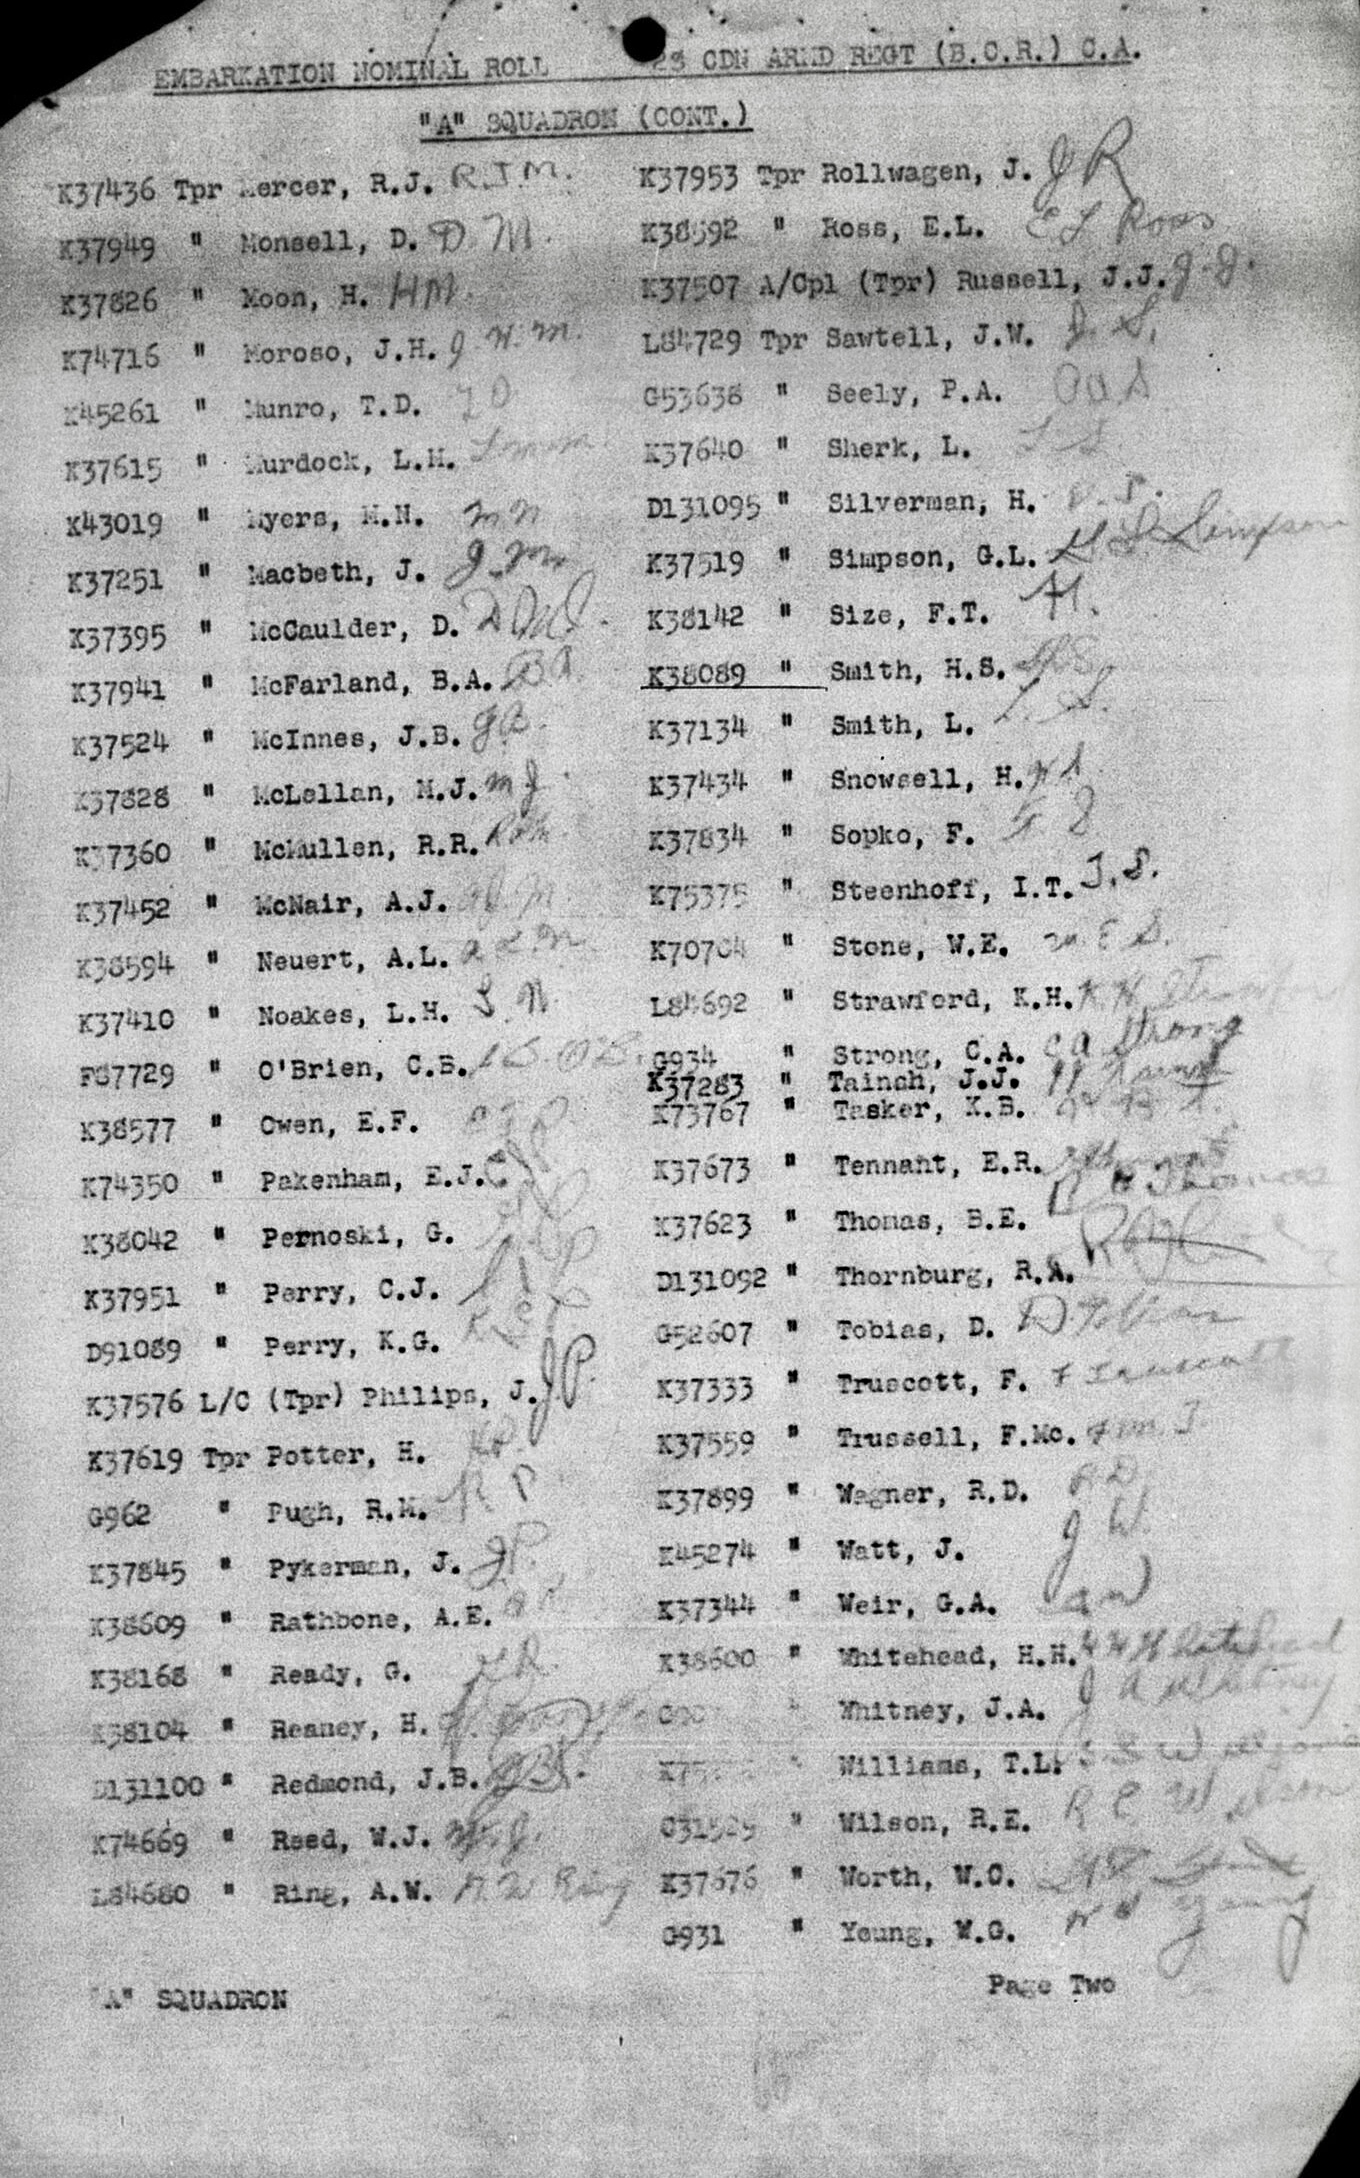 EMBARKATION NOMINAL ROLL 28 CDN ARMD REGT (B.C.R.) C.A.
"A" SQUADRON (CONT.)
K37436 Tpr Mercer, R.J. R.J.M.
K37949 " Monsell, D. D. M.
K37826 " Moon, H. HM.
K74716 " Moroso, J.H. J.H.M.
K45261 " Munro, T.D. T D
K37615 " Murdock, L.H.
K43019 " Myers, M.N. M N
K37251 " Macbeth, J. J. Mc
K37395 " McCaulder, D.
K37941 " McFarland, B.A. B A.
K37524 " McInnes, J.B. JB.
K37828 " McLellan, M.J. M J.
K37360 " McMullen, R.R.
K37452 " McNair, A.J. AJ. M.
K38594 " Neuert, A.L. A L N
K37410 " Noakes, L.H. L N.
F87729 " O'Brien, C.B. C B. O'B.
K38577 " Owen, E.F.
K74350 " Pakenham, E.J.C.
K38042 " Pernoski, G.
K37951 " Perry, C.J.
D91089 " Perry, K.G.
K37576 L/C (Tpr) Philips, J. J.P.
K37619 Tpr Potter, H. HP.
G962 " Pugh, R.M. R P
K37845 " Pykerman, J. JP.
K38609 " Rathbone, A.E.
K38168 " Ready, G. G R.
K38104 " Reaney, H.
D131100 " Redmond, J.B. JBR.
K74669 " Reed, W.J. W.J.
L84680 " Ring, A.W. A W Ring
"A" SQUADRON
K37953 Tpr Rollwagen, J. J R
K38592 " Ross, E.L. E L Ross
K37507 A/Cpl (Tpr) Russell, J.J. J.J.
L84729 Tpr Sawtell, J.W. J. S.
G53638 " Seely, P.A. P A S
K37640 " Sherk, L. L S
D131095 " Silverman, H.
K37519 " Simpson, G.L. G L Simpson
K38142 " Size, F.T.
K38089 " Smith, H.S. HS
K37134 " Smith, L. L. S.
K37434 " Snowsell, H. H S
K37834 " Sopko, F. F S
K75375 " Steenhoff, I.T. I.S.
K70704 " Stone, W.E. W. E S.
L84692 " Strawford, K.H. K H Strawford
G934 " Strong, C.A. C A Strong
K37283 " Tainsh, J.J. JJ Tainsh
K73767 " Tasker, K.B. K B T.
K37673 " Tennant, E.R.
K37623 " Thomas, B.E. Thomas
D131092 " Thornburg, R.A.
G52607 " Tobias, D. D. Tobias
K37333 " Truscott, F. F Truscott
K37559 " Trussell, F.Mc. F Mc. T.
K37899 " Wagner, R.D. R D
K45274 " Watt, J. J W.
K37344 " Weir, G.A. G W
K38600 " Whitehead, H.H. H H Whitehead
" Whitney, J.A. J A Whitney
" Williams, T.L. Williams
G31529 " Wilson, R.E. R E Wilson
K37676 " Worth, W.C.
G931 " Young, W.G. W G Young
Page Two